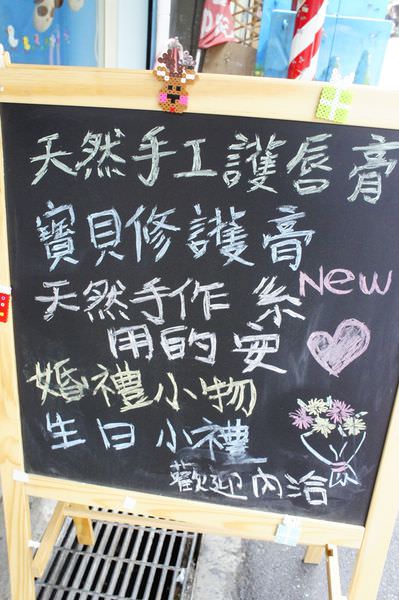 天然手工護唇膏
寶貝修護膏
天然手作 系
New
用的安
婚禮小物
生日小禮
歡迎內洽